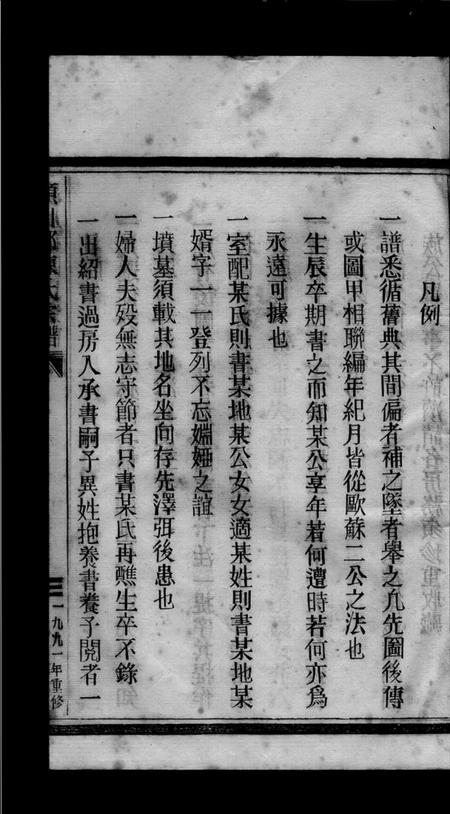 凡例
一譜悉循舊典其間偏者補之墜者舉之凡先圖後傳
或圖甲相聯編年紀月皆從歐蘇二公之法也
一生辰卒期書之而知某公享年若何遭時若何亦為
永遠可據也
一室配某氏則書某地某公女女適某姓則書某地某
婿字一一登列不忘婣婭之誼
一墳墓須載其地名坐向存先澤弭後患也
一婦人夫歿無志守節者只書某氏再醮生卒不錄
一出紹書過房入承書嗣子異姓抱養書養子閱者一
陳氏宗譜
一九九一年重修